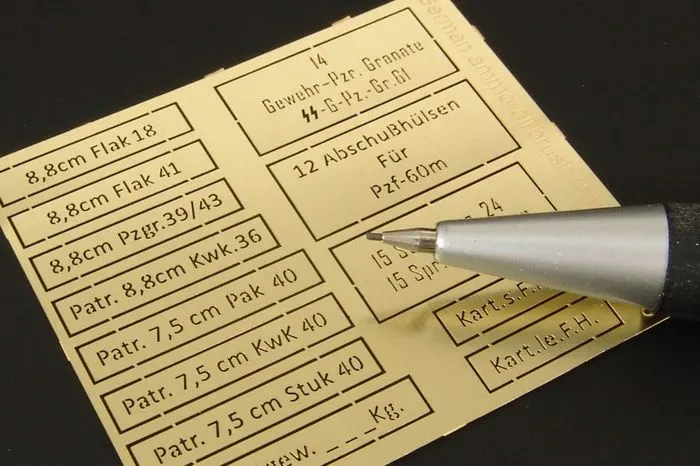 8,8cm Flak 18
8,8cm Flak 41
8,8cm Pzgr.39/43
Patr. 8,8cm Kwk.36
Patr. 7,5 cm Pak 40
Patr. 7,5 cm KwK 40
Patr. 7,5 cm Stuk 40
Kg.
14
Gewehr-Pzr. Granate
SS-G-Pz.-Gr.61
12 Abschußhülsen
Für
Pzf-60m
15
24
15 Spr.
Kart.s.F.
Kart.le.F.H.
german ammo airbrush